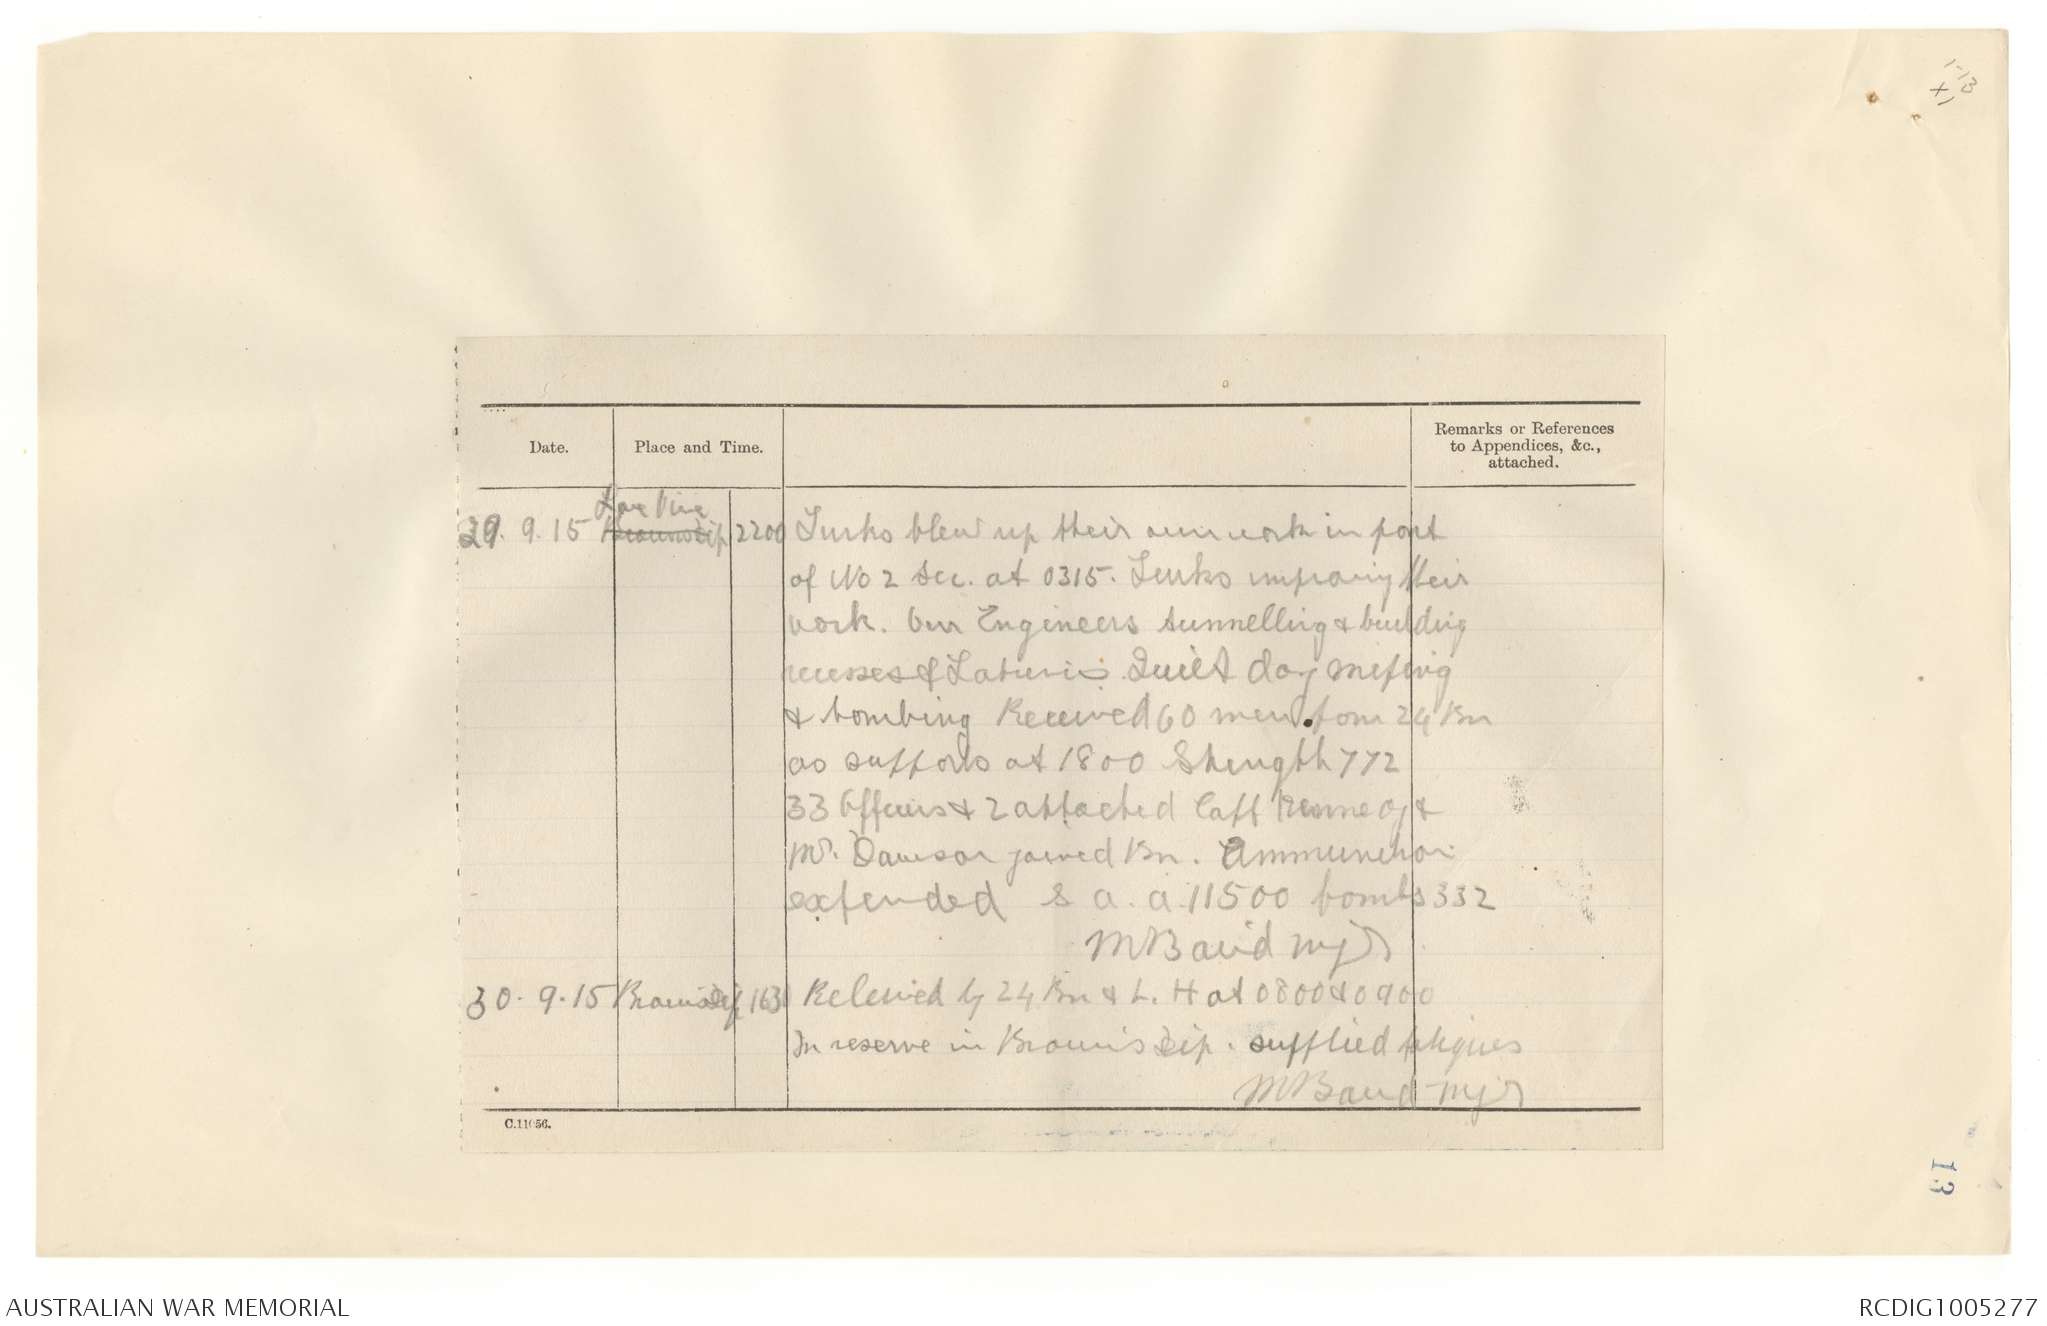 1-13
X1
Date.
Place and Time.
Remarks or References
to Appendices, &c.,
attached.
Lone Pine
29. 9. 15 Browns Dip 2200 Turks blew up their own work in port
of No 2 Sec. at 0315. Turks improving their
work. Our Engineers tunnelling & building
recesses & Latrines. Quiet day
& bombing Received 60 men from 24 Bn
as supports at 1800 Strength 772
33 Officers & 2 attached Capt Kennedy &
Mr. Dawson joined Bn. Ammunition
expended S a. a 11500 bombs 332
M Baird Mjr
30. 9. 15 Browns Dip 1630 Relieved by 24 Bn & L. H at 0800 & 0900
In reserve in Brown's Dip. supplied fatigues
M Baird Mjr
C.11056.
13
AUSTRALIAN WAR MEMORIAL
RCDIG1005277